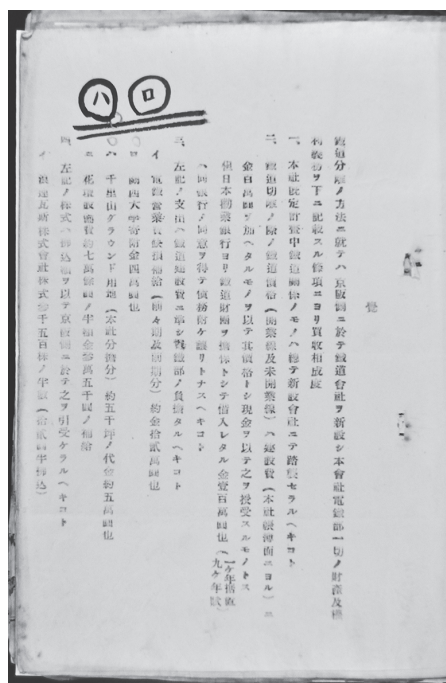 ロ
ハ
覺
鐵道分離ノ方法ニ就テハ京阪側ニ於テ鐵道會社ヲ新設シ本會社電鐵部一切ノ財產及權
利義務ヲ下ニ記載スル條項ニヨリ買收相成度
一、本社既定計畫中鐵道關係ノモノハ總テ新設會社ニテ踏襲セラルヘキコト
二、鐵道切離ノ際ノ鐵道價格(開業線及未開業線)ハ建設費(本社帳簿面ニヨル)ニ
金百萬圓ヲ加ヘタルモノヲ以テ其價格トシ現金ヲ以テ之ヲ授受スルモノトス
但日本勸業銀行ヨリ鐵道財團ヲ擔保トシテ借入レタル金壹百萬圓也(
ハ同銀行ノ同意ヲ得テ債務肩ケ譲リトナスヘキコト
三、左記ノ支出ハ鐵道建設費ニ準シ電鐵部ノ負擔タルヘキコト
イ 電鐵營業 缺損補給(前々期及前期分)約金拾貳萬圓也
〇ロ 關西大學寄附金四萬圓也
〇ハ 千里山グラウンド用地(本社分擔分)約五千坪ノ代金約五萬圓也
ニ 花壇設備費約七萬圓ノ半額金參萬五千圓ノ補給
四、左記ノ株式ハ拂込額ヲ以テ京阪側ニ於テ之ヲ引受ケラルヘキコト
イ 浪速瓦斯株式會社株式參千五百株ノ半數(拾貳圓半拂込)